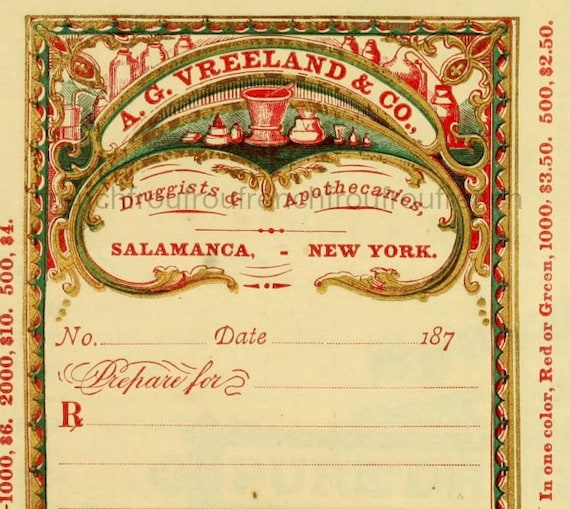 A. G. VREELAND & CO.,
Druggists & Apothecaries,
SALAMANCA, - NEW YORK.
No. Date 187
Prepare for
℞
-1000, $6. 2000, $10. 500, $4.
In one color, Red or Green, 1000, $3.50. 500, $2.50.